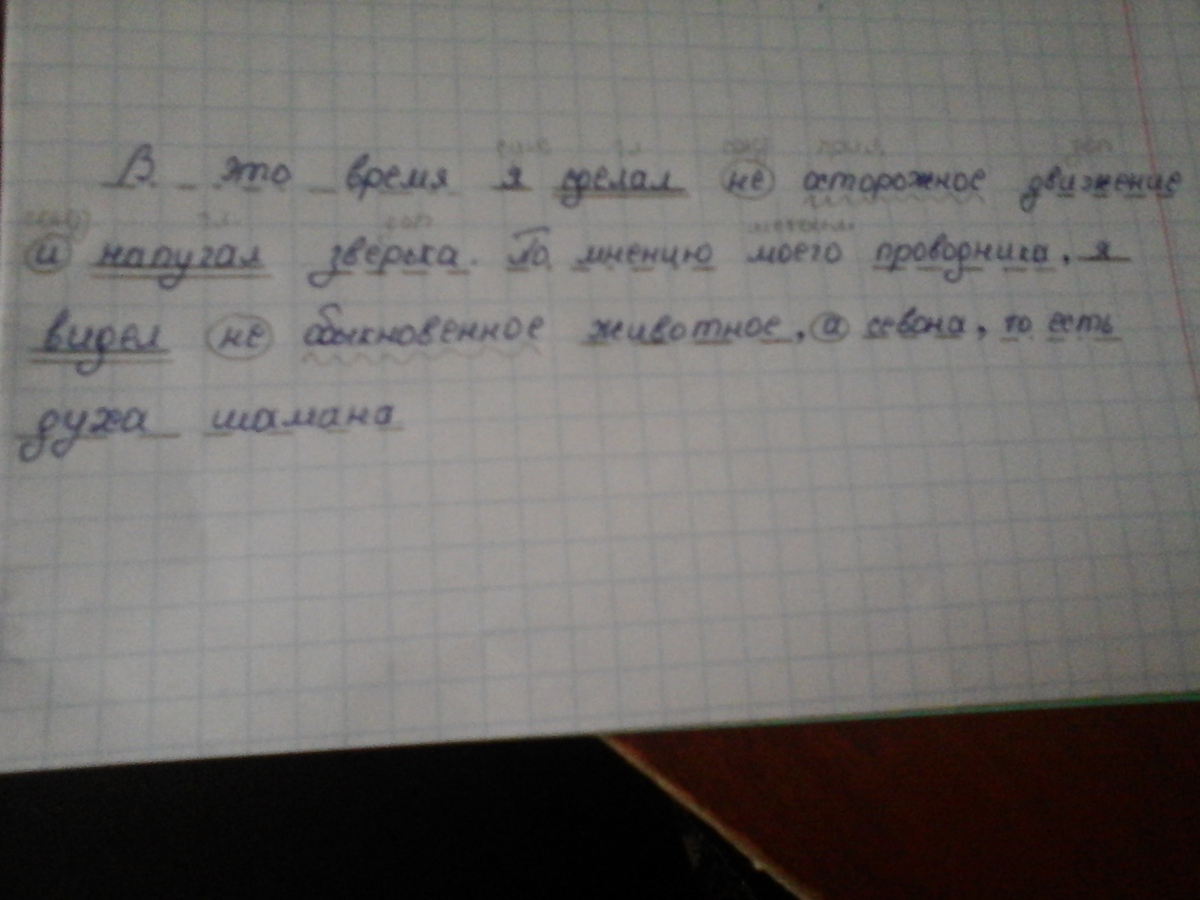 В это время я сделал не осторожное движение
и напугал зверька. По мнению моего проводника, я
видел не обыкновенное животное, а севона, то есть
духа шамана